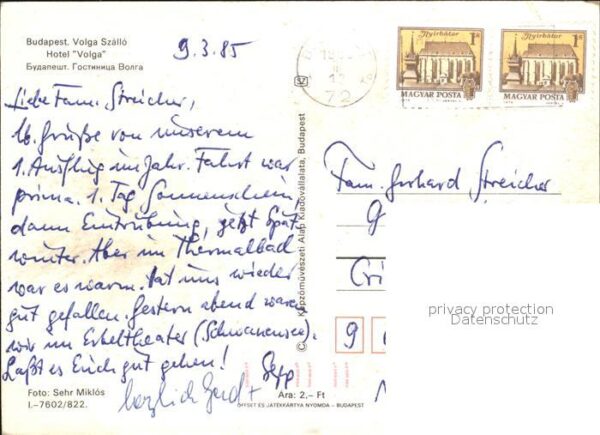 Budapest. Volga Szálló
Hotel "Volga"
Будапешт. Гостиница Волга
9.3.85
Liebe Fam. Streicher,
lb. Grüße von unserem
1. Ausflug im Jahr. Fahrt war
prima. 1. Tag Sonnenschein,
dann Eintrübung, jetzt Spät-
winter. Aber im Thermalbad
war es warm. Hat uns wieder
gut gefallen. Gestern abend waren
wir im Erkeltheater (Schwanensee).
Laßt es Euch gut gehen!
Sepp
herzlich Gerd +
Foto: Sehr Miklós
I.-7602/822.
Ára: 2,– Ft
OFFSET ÉS JÁTÉKKÁRTYA NYOMDA – BUDAPEST
Képzőművészeti Alap Kiadóvállalata, Budapest
72
Nyírbátor
1 Ft
MAGYAR POSTA
Nyírbátor
1 Ft
MAGYAR POSTA
Fam. Gerhard Streicher
G
Cri
9
privacy protection
Datenschutz